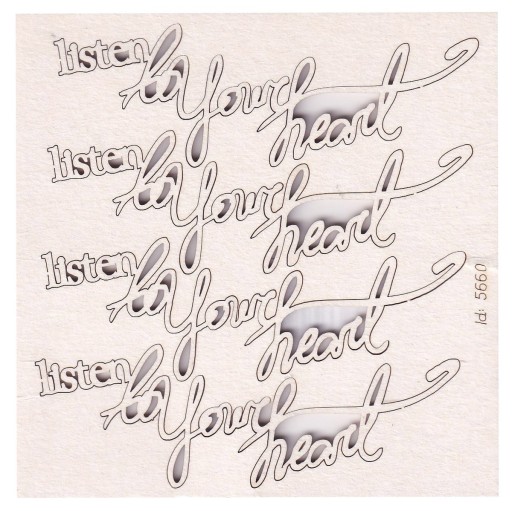 listen to Your heart
listen to Your heart
listen to Your heart
listen to Your heart
Id: 5660